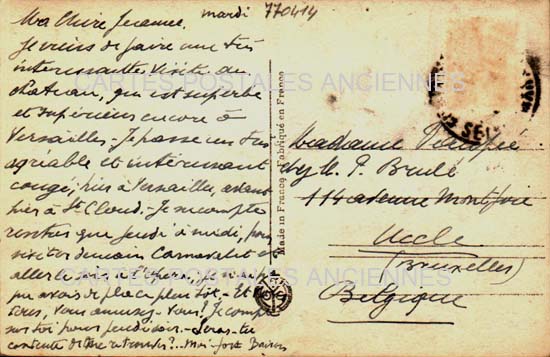 Ma Chère Jeanne. mardi
770414
Je viens de faire une très
intéressante visite du
château, qui est superbe
et supérieur encore à
Versailles - Je passe un très
agréable et intéressant
congé; hier à Versailles, avant
hier à St Cloud - Je ne compte
rentrer que jeudi à midi, pour
visiter demain Carnavalet et
aller
pu avoir de place plus tôt - Et
vous, vous amusez-vous? Je compte
sur toi pour jeudi soir - Seras-tu
contente de me retrouver?...
CARTES POSTALES ANCIENNES
CARTES POSTALES ANCIENNES
Made in France - Fabriqué en France
Madame
chez M. P. Brulé
114 avenue Montjoie
Uccle
(Bruxelles)
Belgique